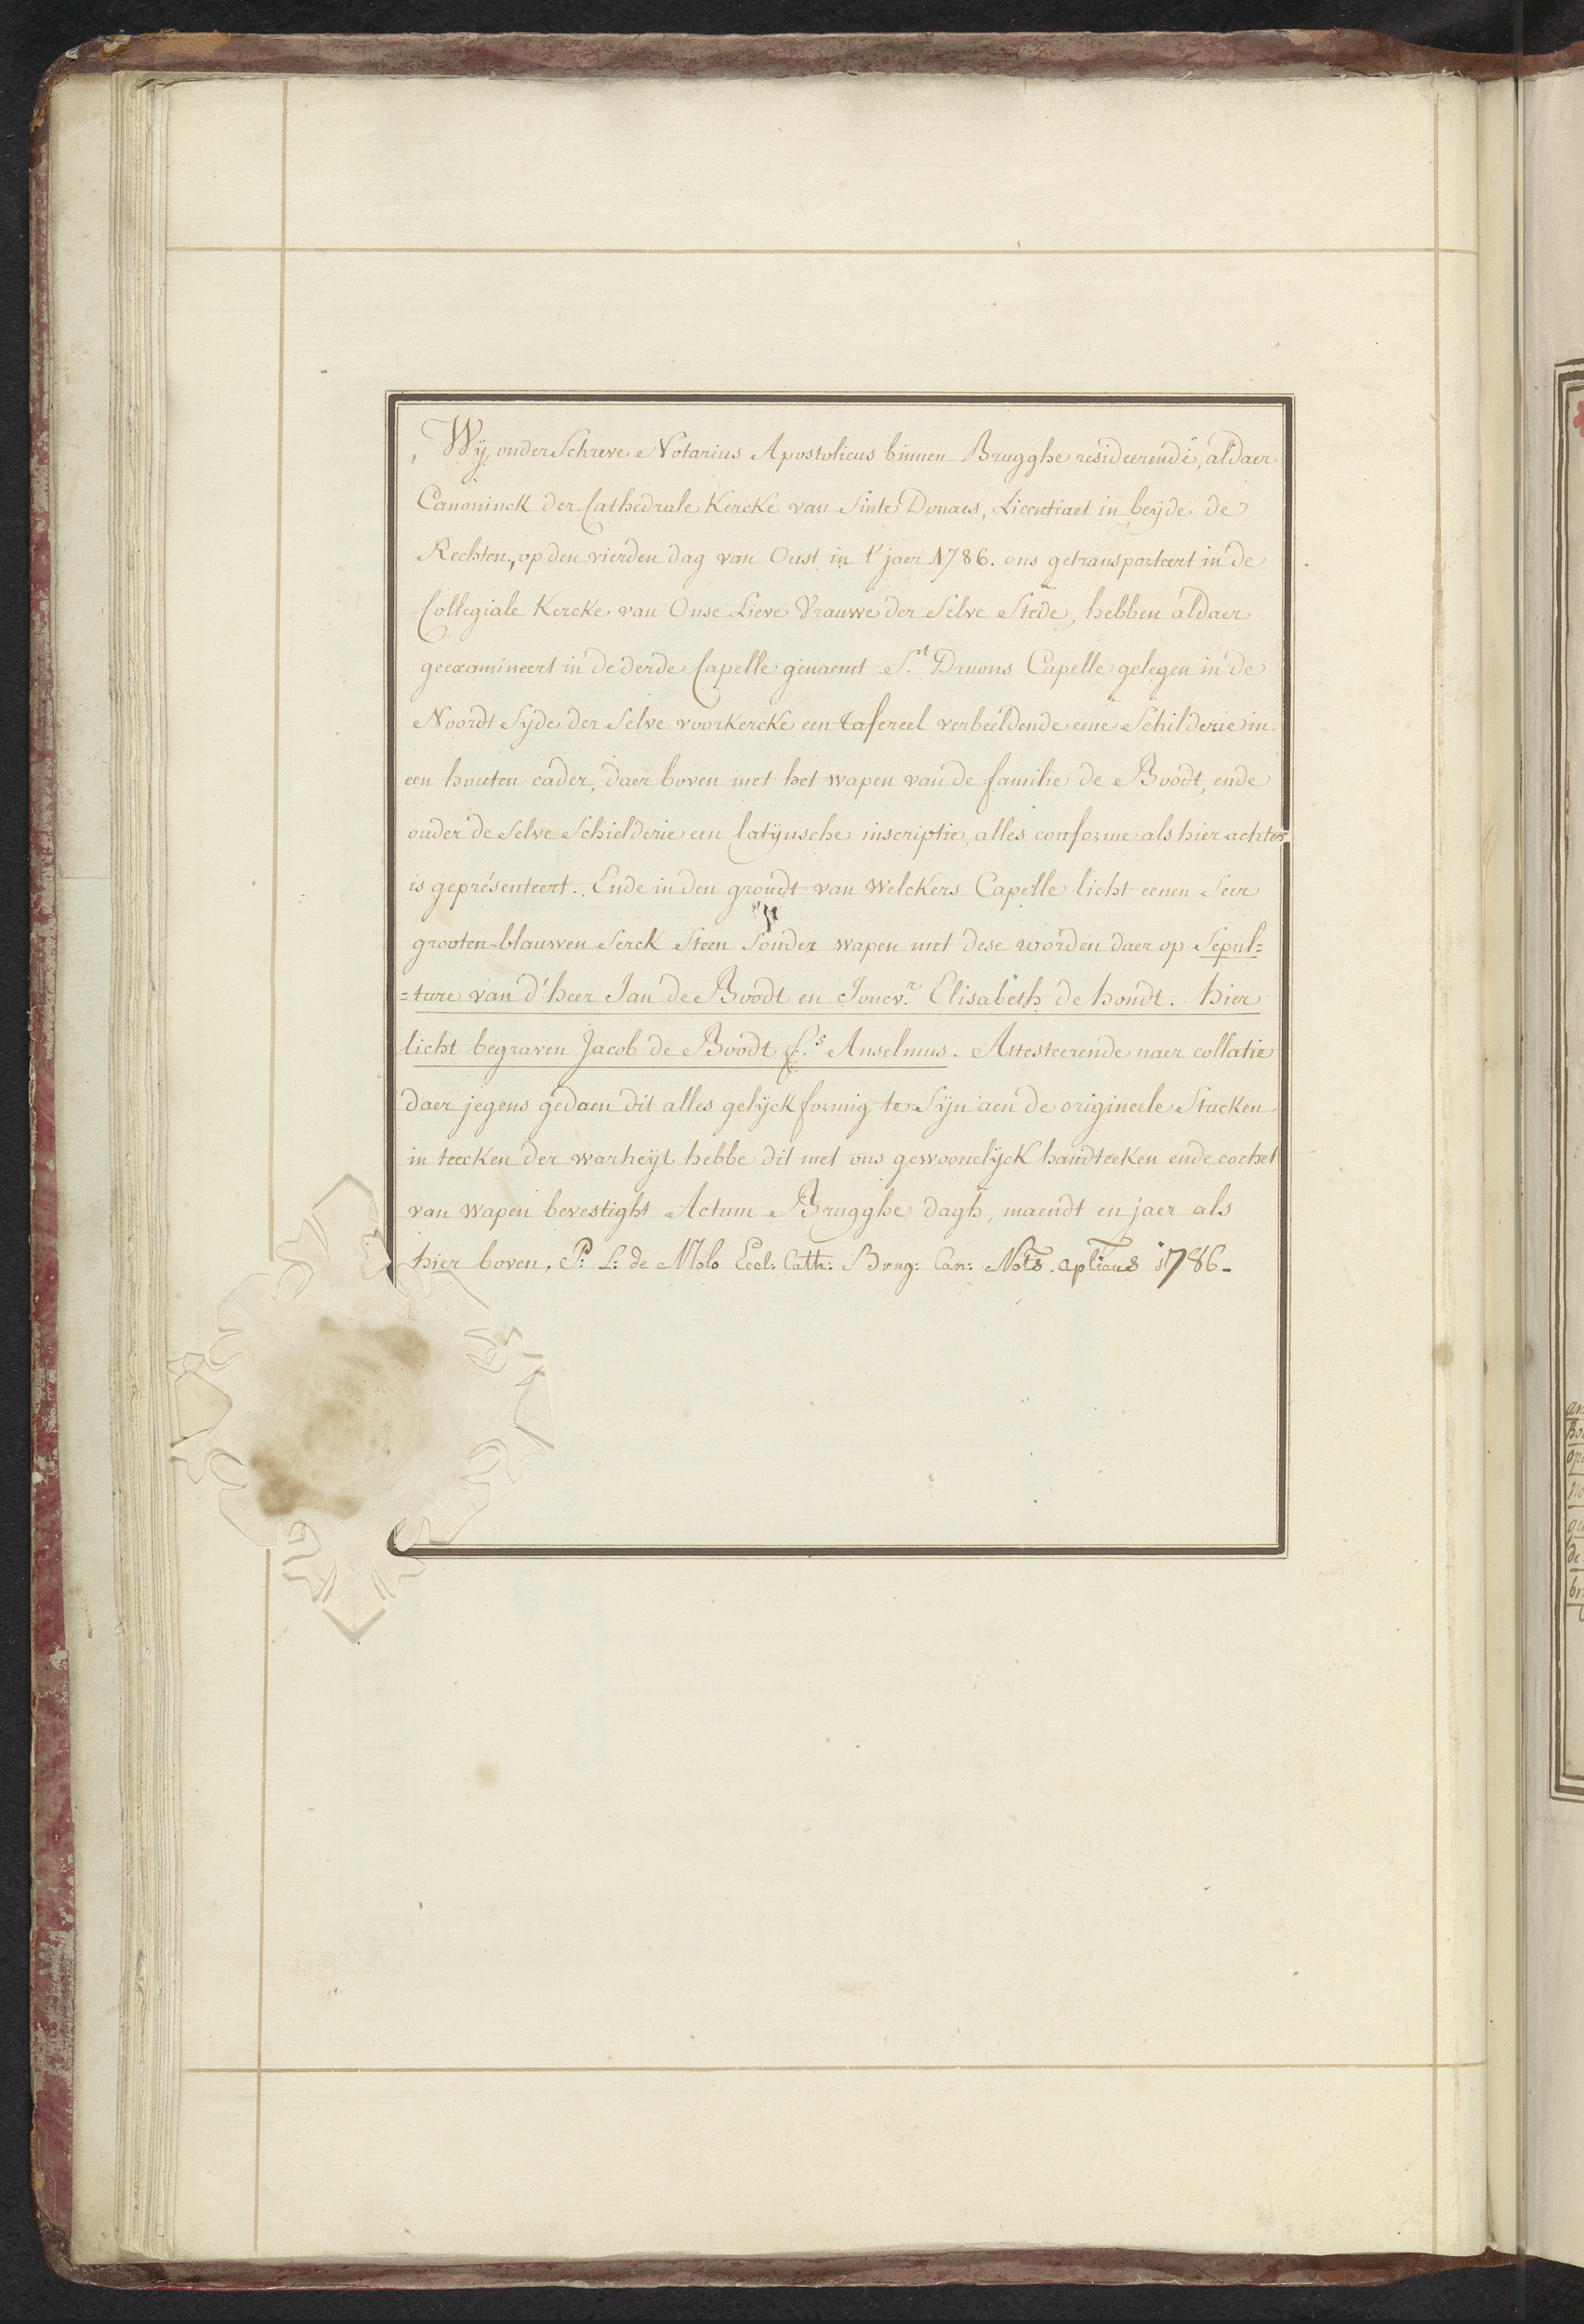 Wÿ onderSchreve Notarius Apostolicus binnen Brugghe resideerende, aldaer
Canoninck der Cathedrale Kercke van Sinte Donaes, Licentiaet in beÿde de
Rechten, op den vierden dag van Oust in t' jaer 1786. ons getransporteert in de
Collegiale Kercke van Onse Lieve Vrauwe der Selve Stede, hebben aldaer
geexamineert in de derde Capelle genaemt S.t Druons Capelle gelegen in de
Noordt Syde der Selve voorkercke een tafereel verbeeldende eene Schilderie in
een houten cader, daer boven met het wapen van de familie de Boodt, ende
onder de Selve Schielderie een latÿnsche inscriptie, alles conforme als hier achter
is gepresenteert. Ende in den grondt van Welckers Capelle licht eenen Seer
grooten blauwen Serck Steen Sonder wapen met dese worden daer op Sepul=
=ture van d'heer Jan de Boodt en Joncv.r Elisabeth de hondt. hier
licht begraven Jacob de Boodt f.s Anselmus. Attesteerende naer collatie
daer jegens gedaen dit alles gelÿckformig te Sÿn aen de origineele Stucken
in teecken der warheÿt hebbe dit met ons gewoonelÿck handteeken ende cochet
van wapen bevestight Actum Brugghe dagh, maendt en jaer als
hier boven. P: L: de Molo Eccl: Cath: Brug: Can: Nots. aplicus 1786-